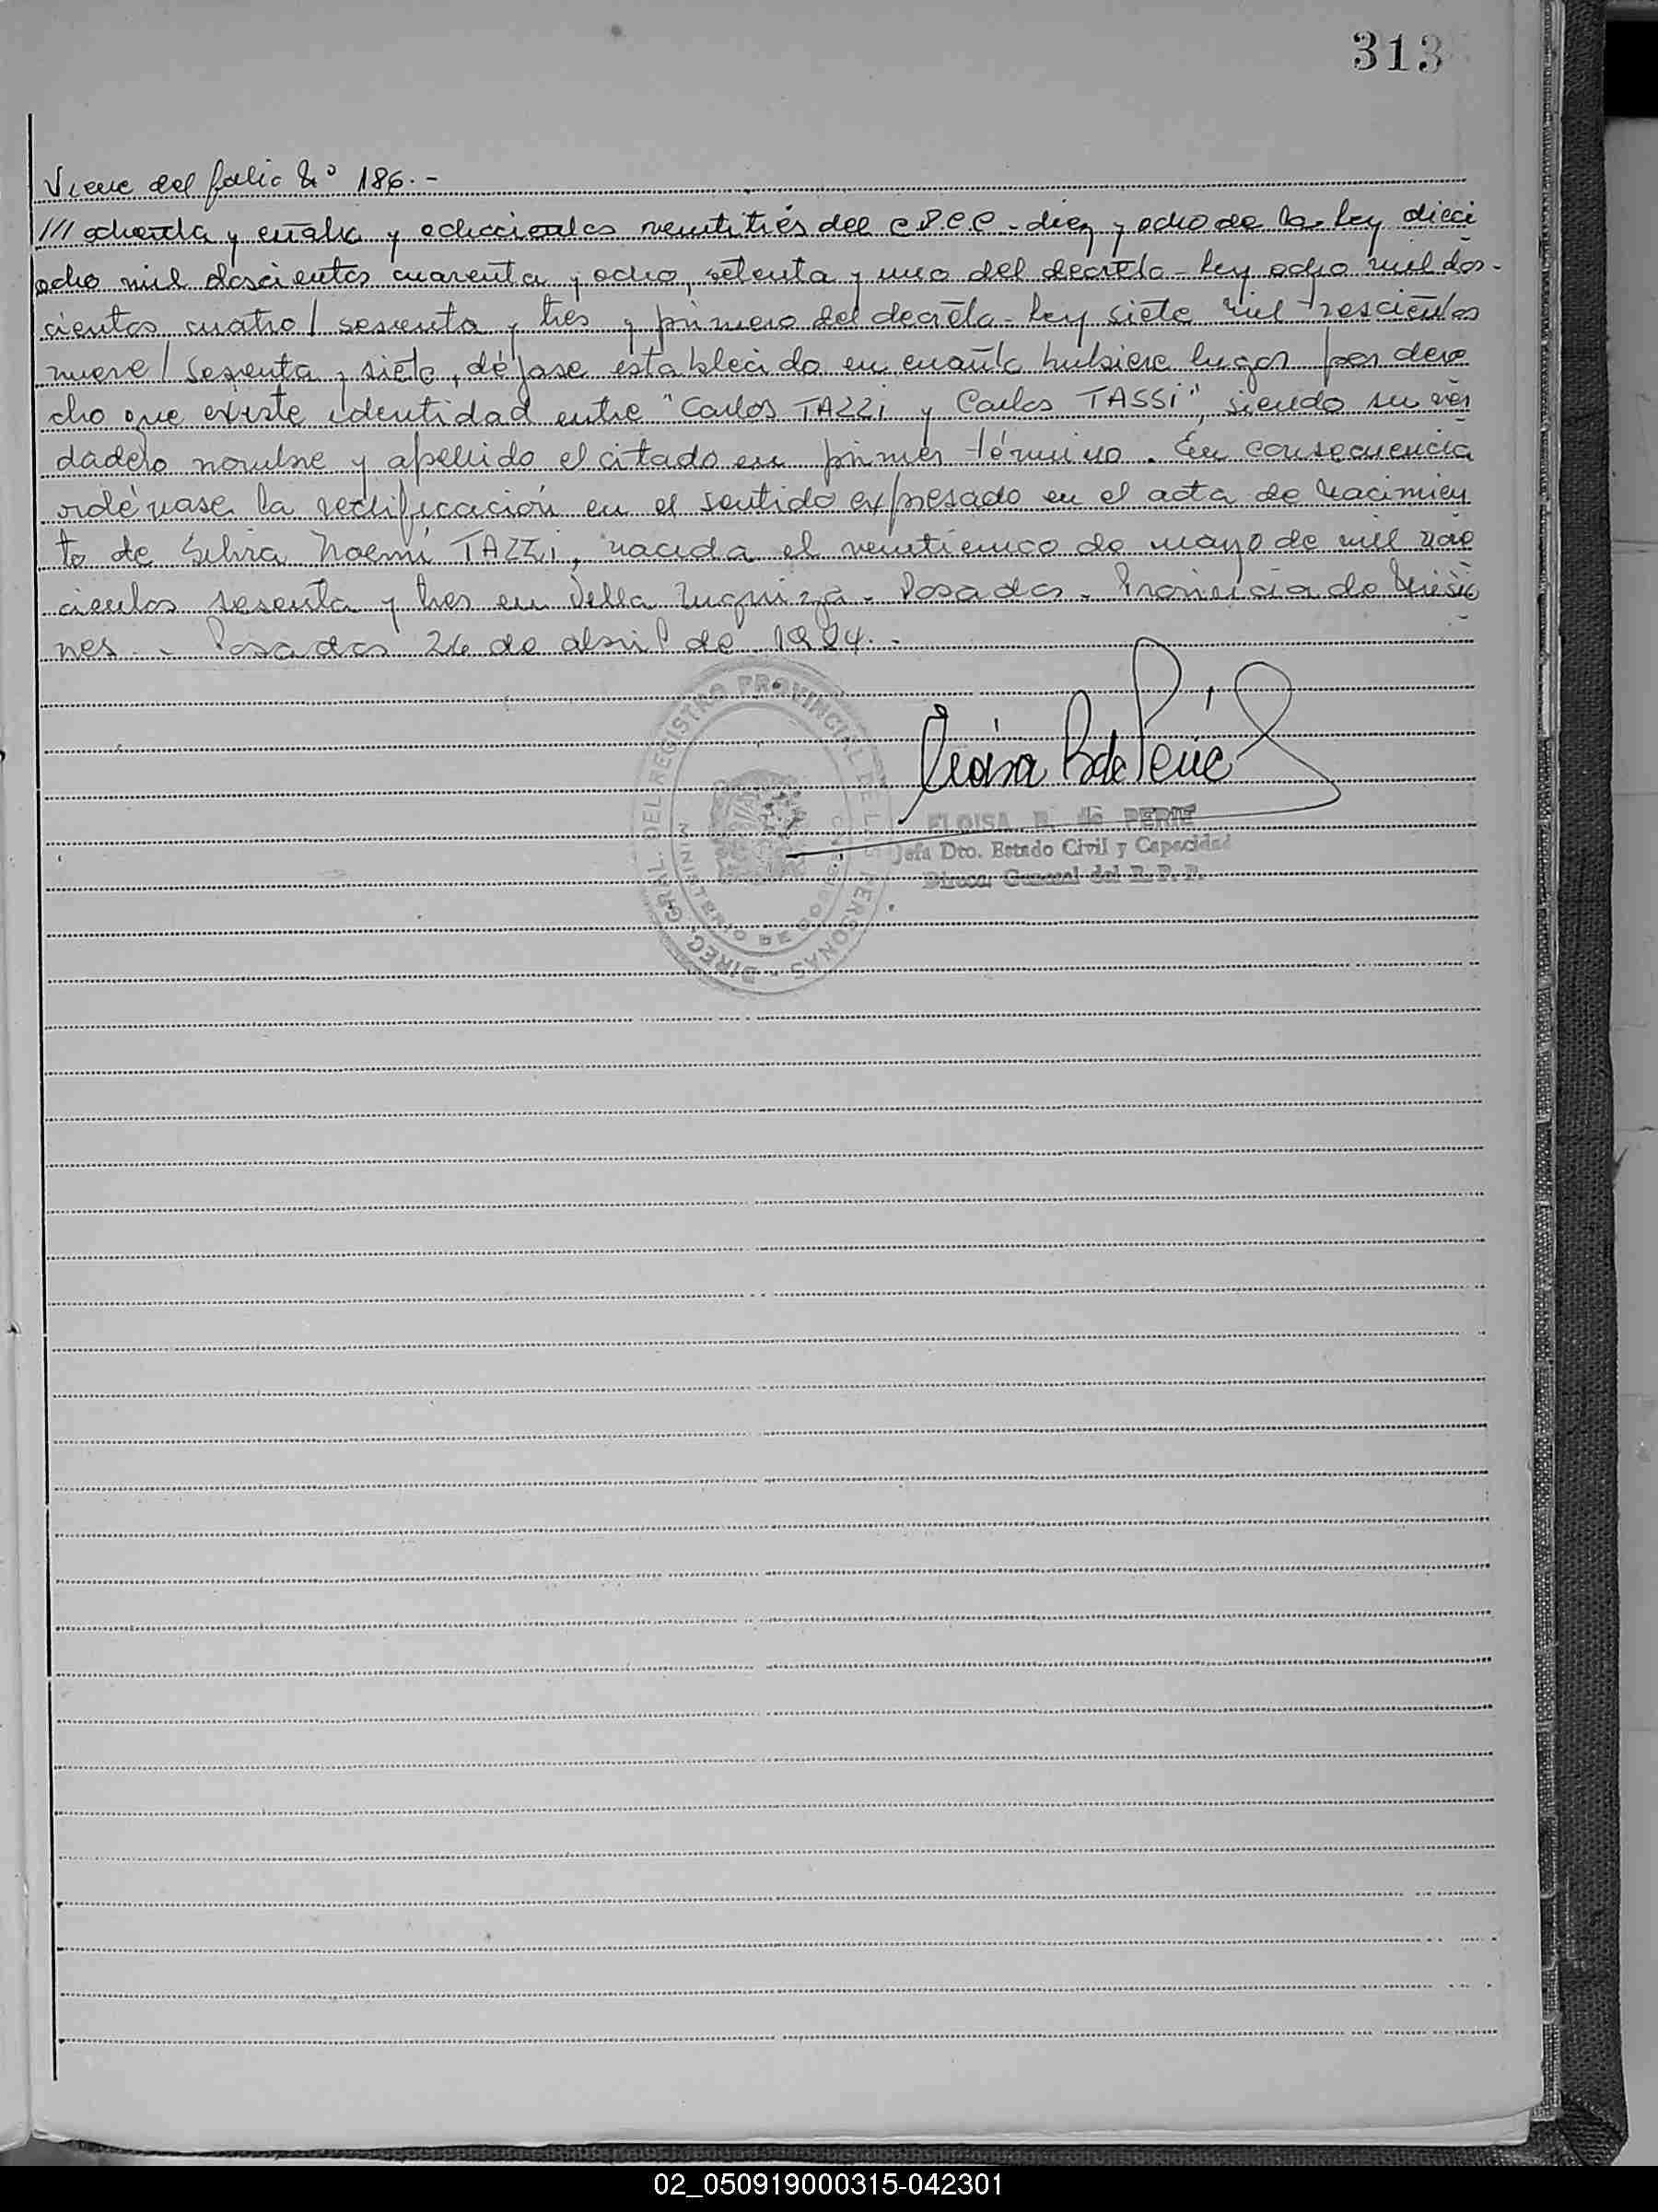 313
Viene del folio Nº 186.-
/// ochenta y cuatro y ochocientos veintitrés del C.P.C.C - diez y ocho de la Ley dieci
ocho mil doscientos cuarenta y ocho, setenta y uno del decreto-Ley ocho mil dos-
cientos cuatro/ sesenta y tres y primero del decreto-Ley siete mil trescientos
nueve/ sesenta y siete, déjase establecido en cuanto hubiere lugar por dere
cho que existe identidad entre "Carlos TAZZi y Carlos TASSi", siendo su ver
dadero nombre y apellido el citado en primer término. En consecuencia
ordénase la rectificación en el sentido expresado en el acta de nacimien
to de Silvia Noemí TAZZi, nacida el veinticinco de mayo de mil nove
cientos sesenta y tres en Villa Urquiza - Posadas - Provincia de Misio
nes. - Posadas 26 de abril de 1984.-
DIREC. GRAL. DEL REGISTRO PROVINCIAL DE LAS PERSONAS
MINISTERIO DE GOBIERNO
ELOISA R. de PERIE
Jefa Dto. Estado Civil y Capacidad
Direcc. General del R. P. P.
02_050919000315-042301